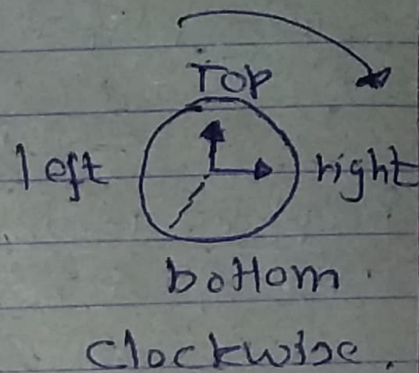 Top
left right
bottom.
Clockwise.